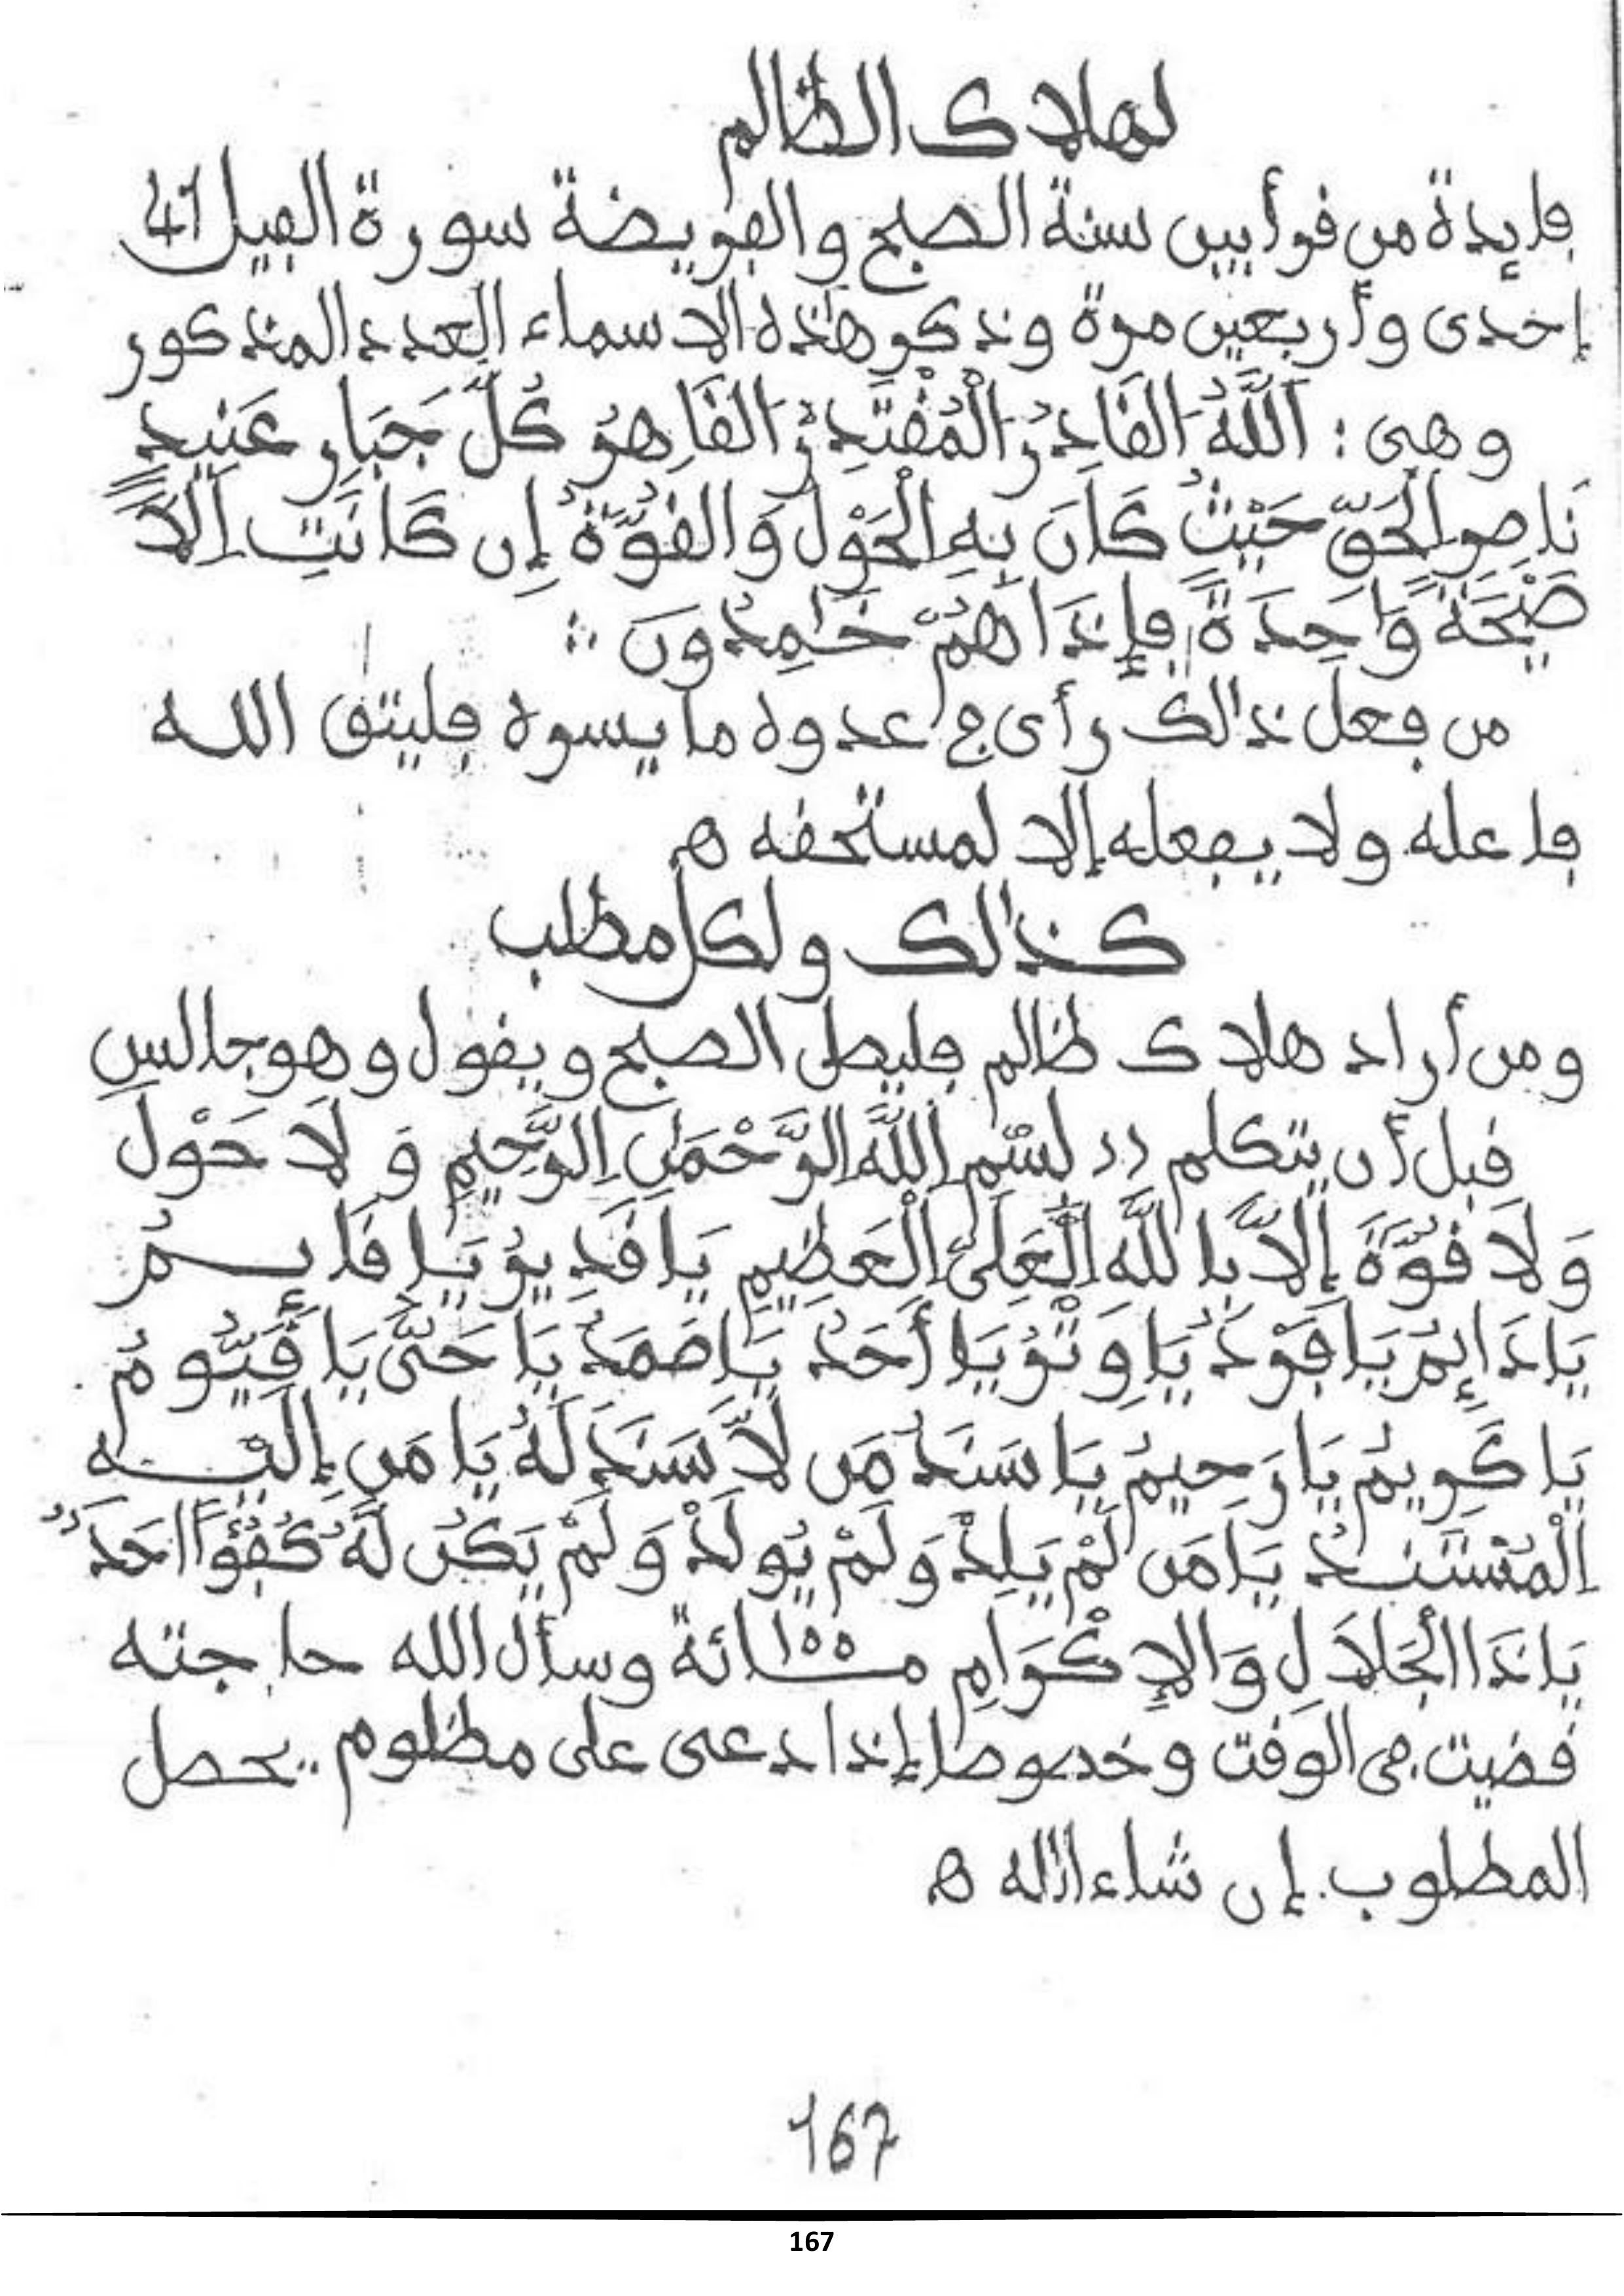 لهلاك الظالم
فايدة من قرأ بين سنة الصبح والفريضة سورة الفيل 41
إحدى وأربعين مرة وذكر هذه الاسماء العدد المذكور
وهي : اَللَّهُ اَلقَادِرُ اَلْمُقْتَدِرُ اَلقَاهِرُ كُلَّ جَبَارٍ عَنِيدٍ
نَاصِرِ الْحَقِّ حَيْثُ كَانَ بِهِ الْحَوْلُ وَالقُوَّةُ إِن كَانَتِ اِلاَّ
صَيْحَةً وَاحِدَةً فإِذَا هُمْ خَامِدُونَ ∴
من فعل ذالك رأى في عدوه ما يسوه فليتق الله
فاعله ولا يفعله إلا لمستحقه ه
كذالك ولكل مطلب
ومن أراد هلاك ظالم فليصل الصبح ويقول وهو جالس
قبل أن يتكلم (( بسْم اِللَّهِ الرَّحْمَنِ اِلرَّحِيمِ وَلاَ حَوْلَ
وَلاَ قُوَّةَ إِلاَّ بَاللَّهِ الْعَلِيِّ الْعَظِيمِ يَا قَدِيرُ يَا قَائِمُ
يَا دَائِمُ يَا فَرْدُ يَا وِتْرُ يَا أَحَدُ يَا صَمَدُ يَا حَيُّ يَا قَيُّومُ
يَا كَرِيمُ يَا رَحِيمُ يَا سَنَدُ مَن لاَّ سَنَدَ لَهُ يَا مَن إِلَيْهِ
اِلْمُسْتَنَدُ يَا مَن لَّمْ يَلِدْ وَلَمْ يُولَدْ وَلَمْ يَكُن لَّهُ كُفُؤًا اَحَدٌ
يَا ذَا الْجَلاَلِ وَالإِكْرَامِ مائة وسأل الله حاجته
قضيت في الوقت وخصوصا إذا دعى على مظلوم يحصل
المطلوب إن شاء الله ه
167
167